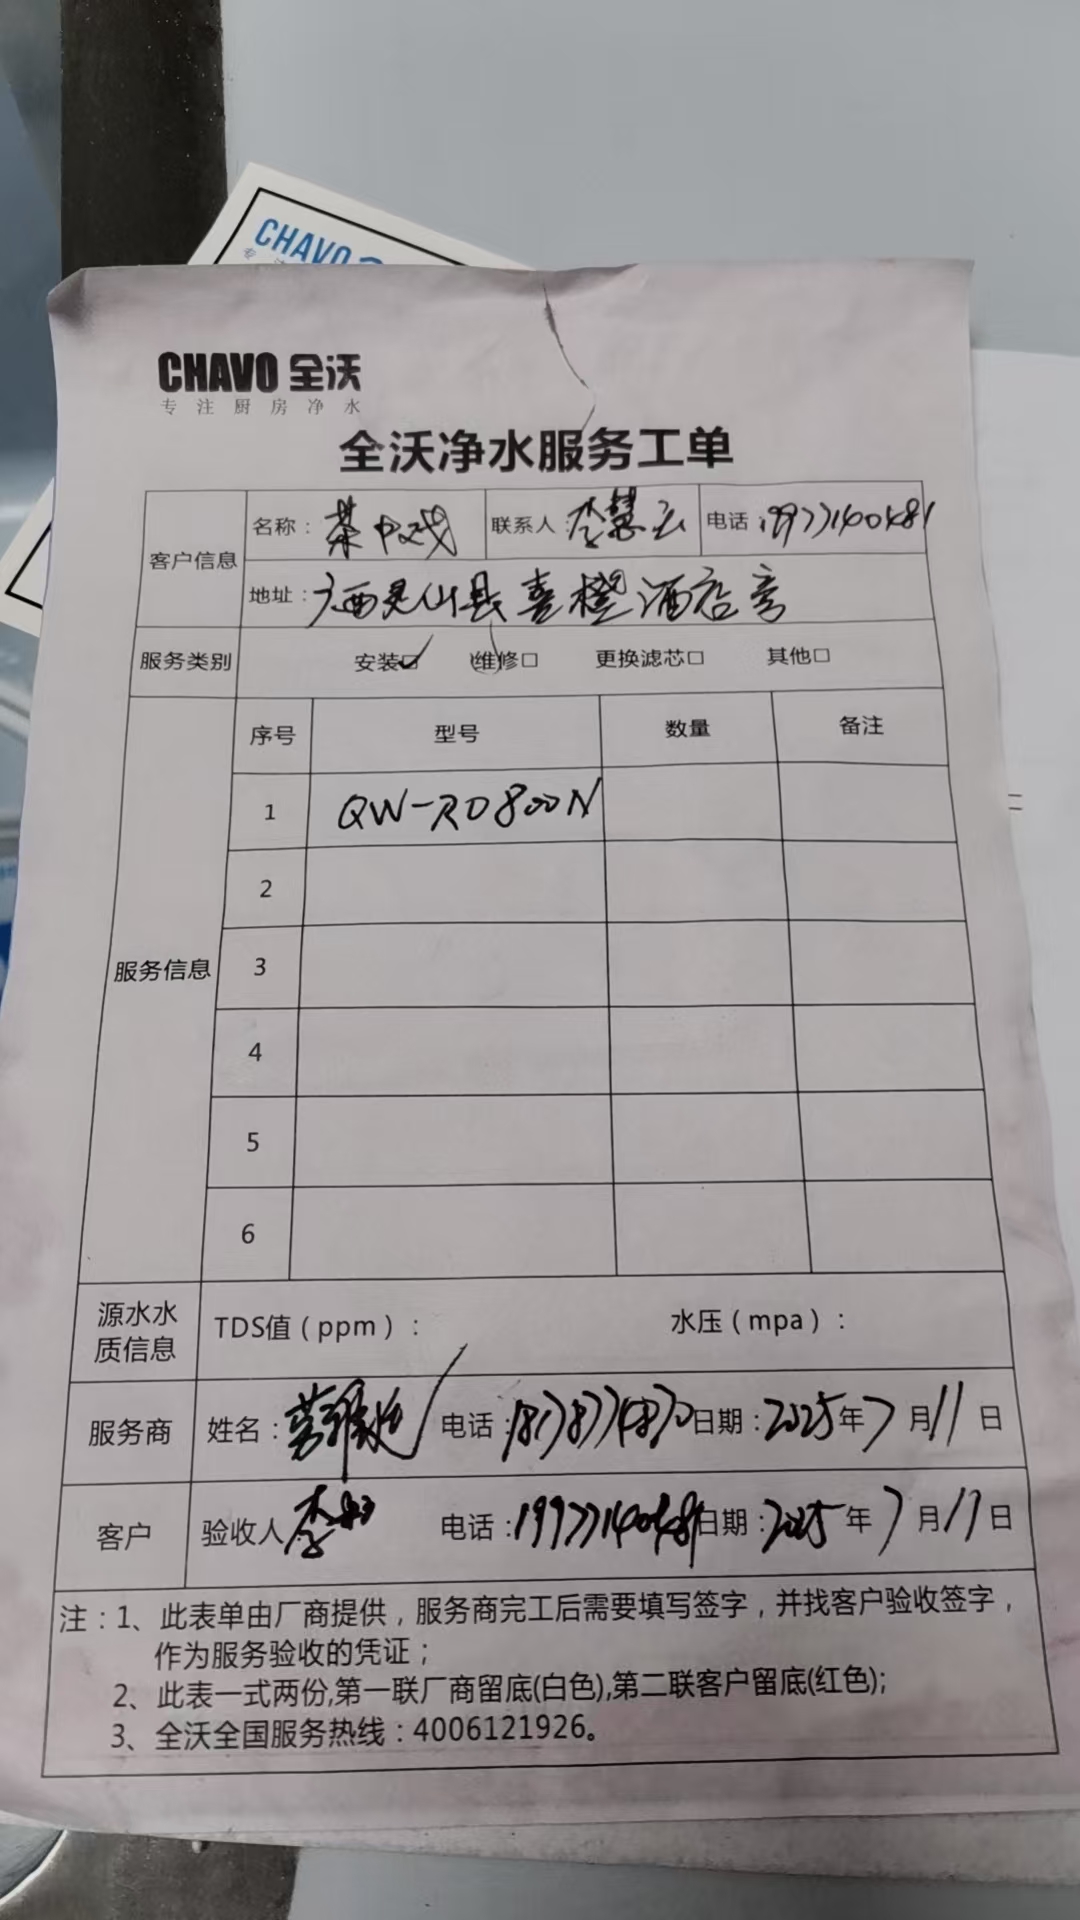 CHAVO
CHAVO 全沃
专注厨房净水
全沃净水服务工单
客户信息 名称：茶中戏 联系人：李慧云 电话：19977140481
地址：广西灵山县喜橙酒店旁
服务类别 安装☑ 维修□ 更换滤芯□ 其他□
服务信息 序号 型号 数量 备注
1 QW-RO800N
2
3
4
5
6
源水水质信息 TDS值（ppm）： 水压（mpa）：
服务商 姓名： 电话：18178774870 日期：2025年7月11日
客户 验收人 李 电话：19977140481 日期：2025年7月11日
注：1、此表单由厂商提供，服务商完工后需要填写签字，并找客户验收签字，
作为服务验收的凭证；
2、此表一式两份,第一联厂商留底(白色),第二联客户留底(红色);
3、全沃全国服务热线：4006121926。